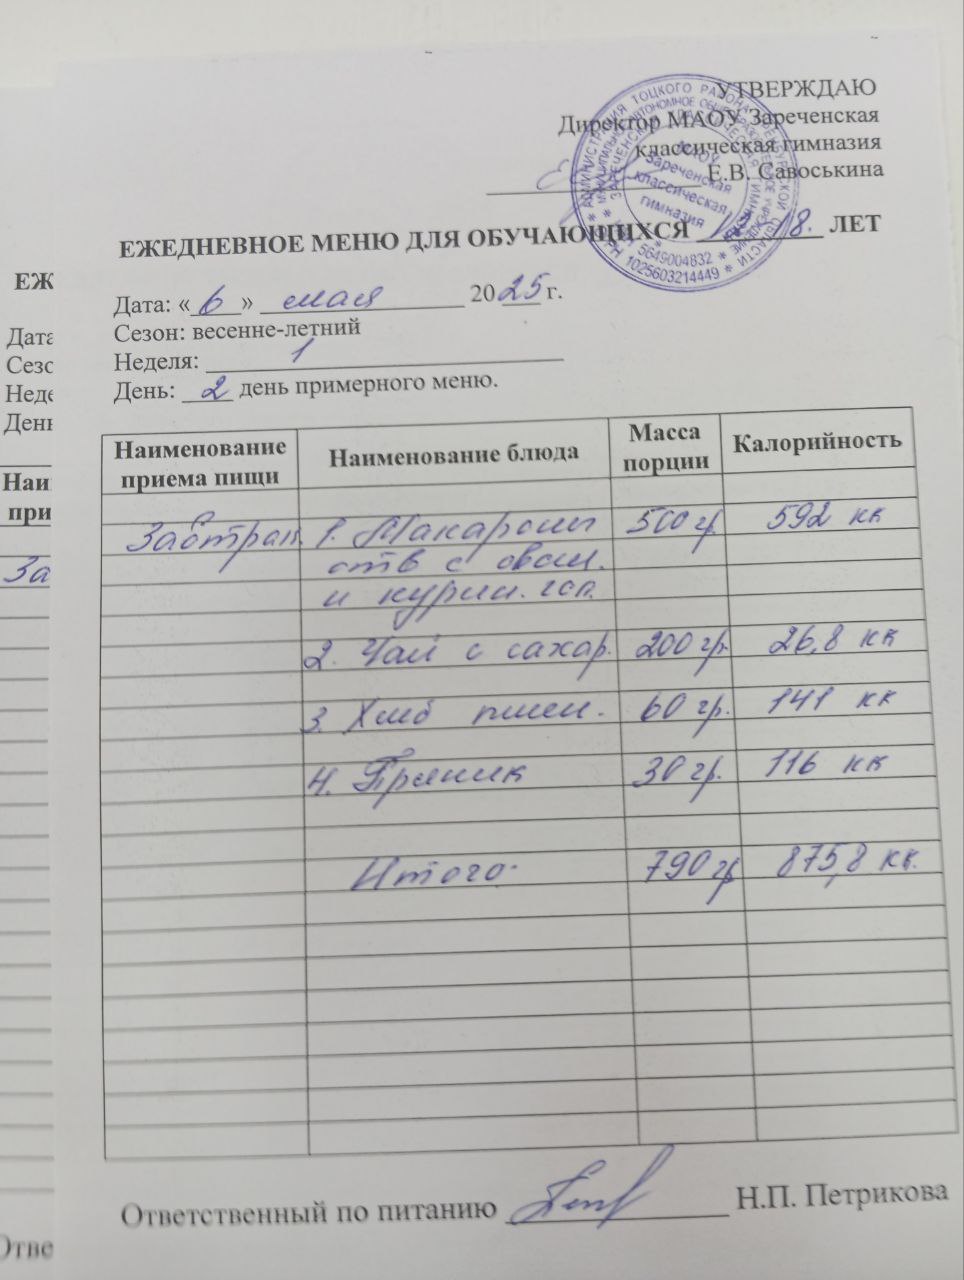 УТВЕРЖДАЮ
Директор МАОУ Зареченская
классическая гимназия
Е.В. Савоськина
ЕЖЕДНЕВНОЕ МЕНЮ ДЛЯ ОБУЧАЮЩИХСЯ 18. ЛЕТ
Дата: «6» мая 2025 г.
Сезон: весенне-летний
Неделя: 1
День: 2 день примерного меню.
Наименование приема пищи Наименование блюда Масса порции Калорийность
Завтрак 1. Макароны 500 гр. 592 кк
отв с овощ.
и курин.
2. Чай с сахар. 200 гр. 26,8 кк
3. Хлеб пшен. 60 гр. 141 кк
4. Пряник 30 гр. 116 кк
Итого: 790 гр 875,8 кк.
Ответственный по питанию Н.П. Петрикова
АДМИНИСТРАЦИЯ ТОЦКОГО РАЙОНА ОРЕНБУРГСКОЙ ОБЛАСТИ
МАОУ
Зареченская
классическая
гимназия
5649004832
1025603214449
ЕЖ
Дата
Сезо
Неде
Ден
Наи
при
За
Отве